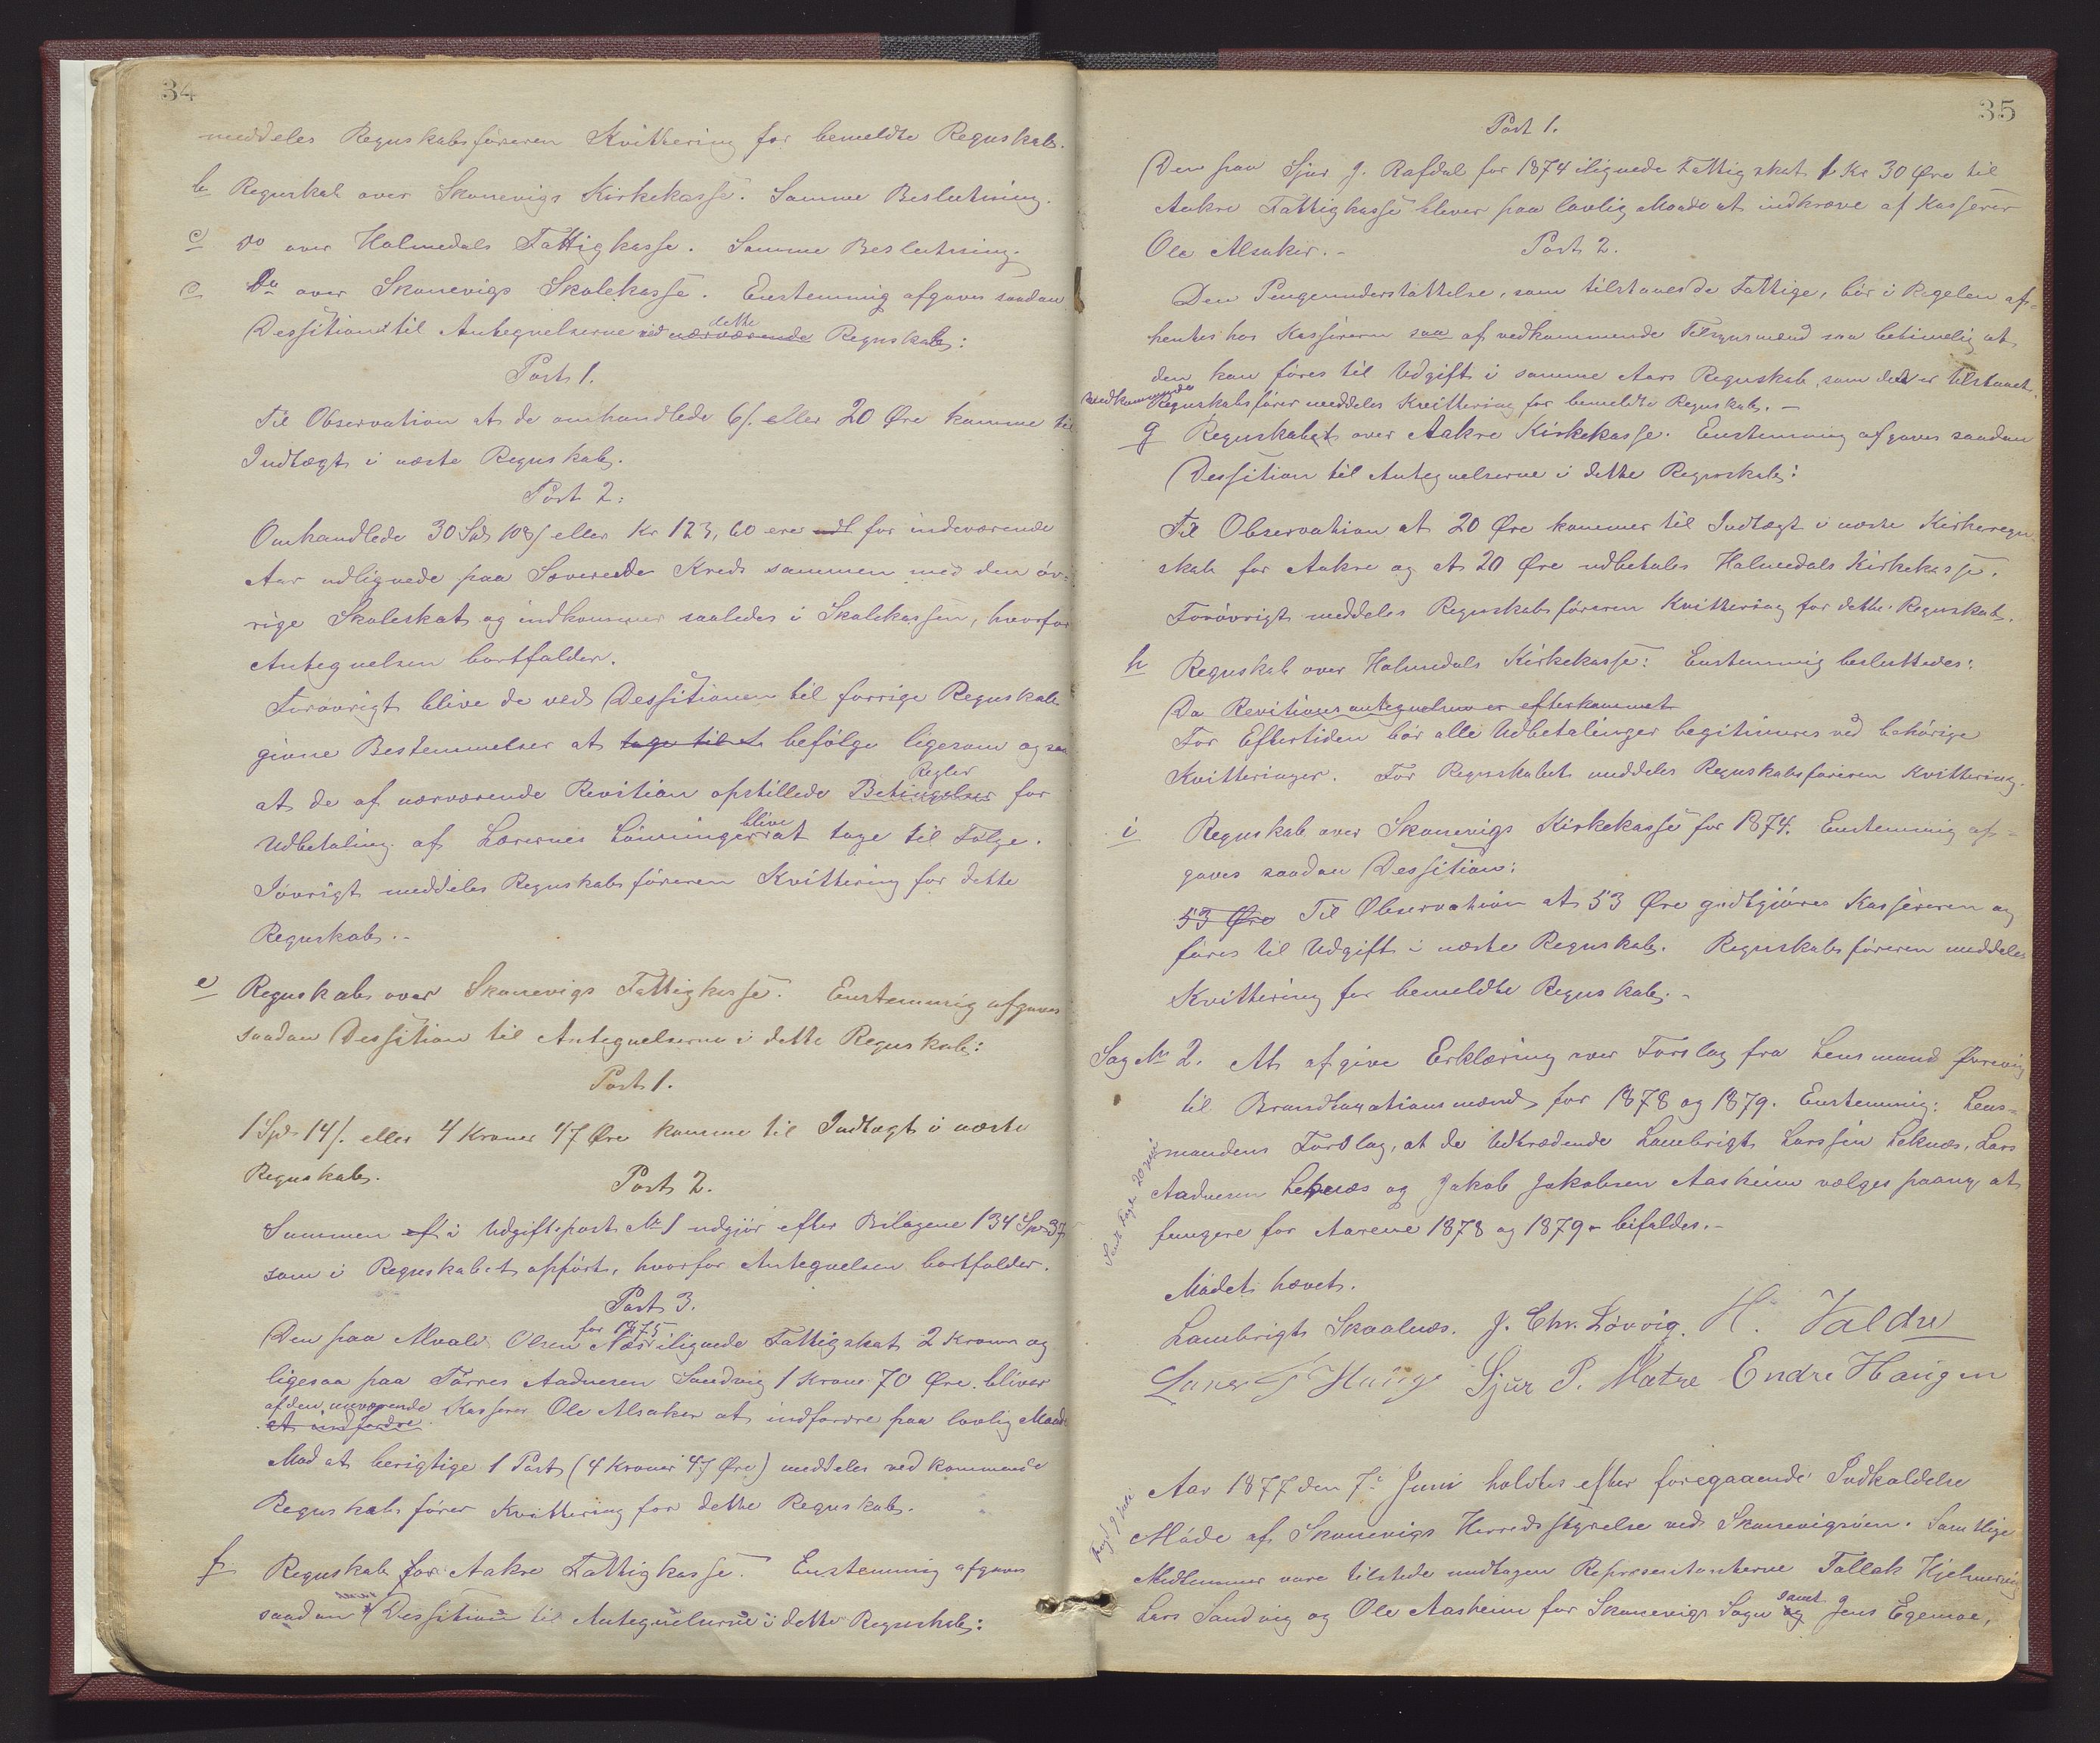 34
meddeles Regnskabsføreren Kvittering for bemeldte Regnskab.
b Regnskab over Skonevigs Kirkekasse. Samme Beslutning.
c do over Holmedals Fattigkasse. Samme Beslutning.
Do over Skonevigs Skolekasse. Enstemmig afgaves saadan
Dessition til Antegnelserne ved nærværende dette Regnskab:
Post 1.
Til Observation at de omhandlede 6/. eller 20 Øre komme til
Indtægt i næste Regnskab.
Post 2.
Omhandlede 30 Spd 108/ eller Kr 123,60 ere for indeværende
Aar udlignede paa Kreds sammen med den øv-
rige Skoleskat og indkommer saaledes i Skolekassen, hvorfor
Antegnelsen bortfalder.
Forøvrigt blive de ved Dessitionen til forrige Regnskab
givne Bestemmelser at tage til befølge ligesom ogsaa
at de af nærværende Revition opstillede Betingelser Regler for
Udbetaling af Lærernes Lønninger blive at tage til Følge.
Iøvrigt meddeles Regnskabsføreren Kvittering for dette
Regnskab.-
e Regnskab over Skonevigs Fattigkasse. Enstemmig afgaves
saadan Dessition til Antegnelserne i dette Regnskab:
Post 1.
1 Spd 14/. eller 4 Kroner 47 Øre komme til Indtægt i næste
Regnskab. Post 2.
Summen i Udgiftspost No 1 udgjør efter Bilagene 134 Spd 37
som i Regnskabet opført, hvorfor Antegnelsen bortfalder.
Post 3.
Den paa Alvald Olsen Næs for 1875 ilignede Fattigskat 2 Kroner og
ligesaa paa Torres Aadnesen Sandvig 1 Krone 70 Øre bliver
at indfordre af den nuværende Kasserer Ole Alsaker at indfordre paa lovlig Maade
Mod at berigtige 1 Post (4 Kroner 47 Øre) meddeles vedkommende
Regnskabsfører Kvittering for dette Regnskab.
f Regnskab for Aakre Fattigkasse. Enstemmig afgaves
saadan Dessition til Antegnelserne i dette Regnskab:
35
Post 1.
Den paa Sjur J. Rafdal for 1874 ilignede Fattigskat 1 Kr 30 Øre til
Aakre Fattigkasse bliver paa lovlig Maade at indkræve af Kasserer
Ole Alsaker.- Post 2.
Den Pengeunderstøttelse, som tilstaaes de Fattige, bør i Regelen af-
hentes hos Kassereren saa af vedkommende Tilsynsmænd saa betimelig at
den kan føres til Udgift i samme Aars Regnskab, som den er tilstaaet
vedkommende Regnskabsfører meddeles Kvittering for bemeldte Regnskab.-
g Regnskabet over Aakre Kirkekasse. Enstemmig afgaves saadan
Dessition til Antegnelserne i dette Regnskab:
Til Observation at 20 Øre kommer til Indtægt i næste Kirkeregn-
skab for Aakre og at 20 Øre udbetales Holmedals Kirkekasse.
Forøvrigt meddeles Regnskabsføreren Kvittering for dette Regnskab.
h Regnskab over Holmedals Kirkekasse: Enstemmig besluttedes:
Da Revitions antegnelsen er efterkommet
For Eftertiden bør alle Udbetalinger legitimeres ved behørige
Kvitteringer. For Regnskabet meddeles Regnskabsføreren Kvittering.
i Regnskab over Skonevigs Kirkekasse for 1874. Enstemmig af-
gaves saadan Dessition:
53 Øre Til Observation at 53 Øre godtgjøres Kassereren og
føres til Udgift i næste Regnskab. Regnskabsføreren meddeles
Kvittering for bemeldte Regnskab.-
Sag No 2. At afgive Erklæring over Forslag fra Lensmand
til Brandtaxationsmænd for 1878 og 1879. Enstemmig: Lens-
mandens Forslag, at de Udtrædende Lambrigt Larssen Leknæs, Lars
Aadnesen Leknæs og Jakob Jakobsen Aasheim vælges paany at
fungere for Aarene 1878 og 1879 bifaldes.-
Mødet hævet.
Lambrigt Skaalnæs. J. Chr. Løvvig. H. Valdre
Sjur P. Matre Endre Haugen
Aar 1877 den 7de Juni holdtes efter foregaaende Indkaldelse
Møde af Skonevigs Herredsstyrelse ved Skonevigsøen. Samtlige
Medlemmer vare tilstede undtagen Repræsentanterne Tallak Hjelmevig
Lars Sandvig og Ole Aasheim for Skonevigs Sogn og samt Jens Egemoe,